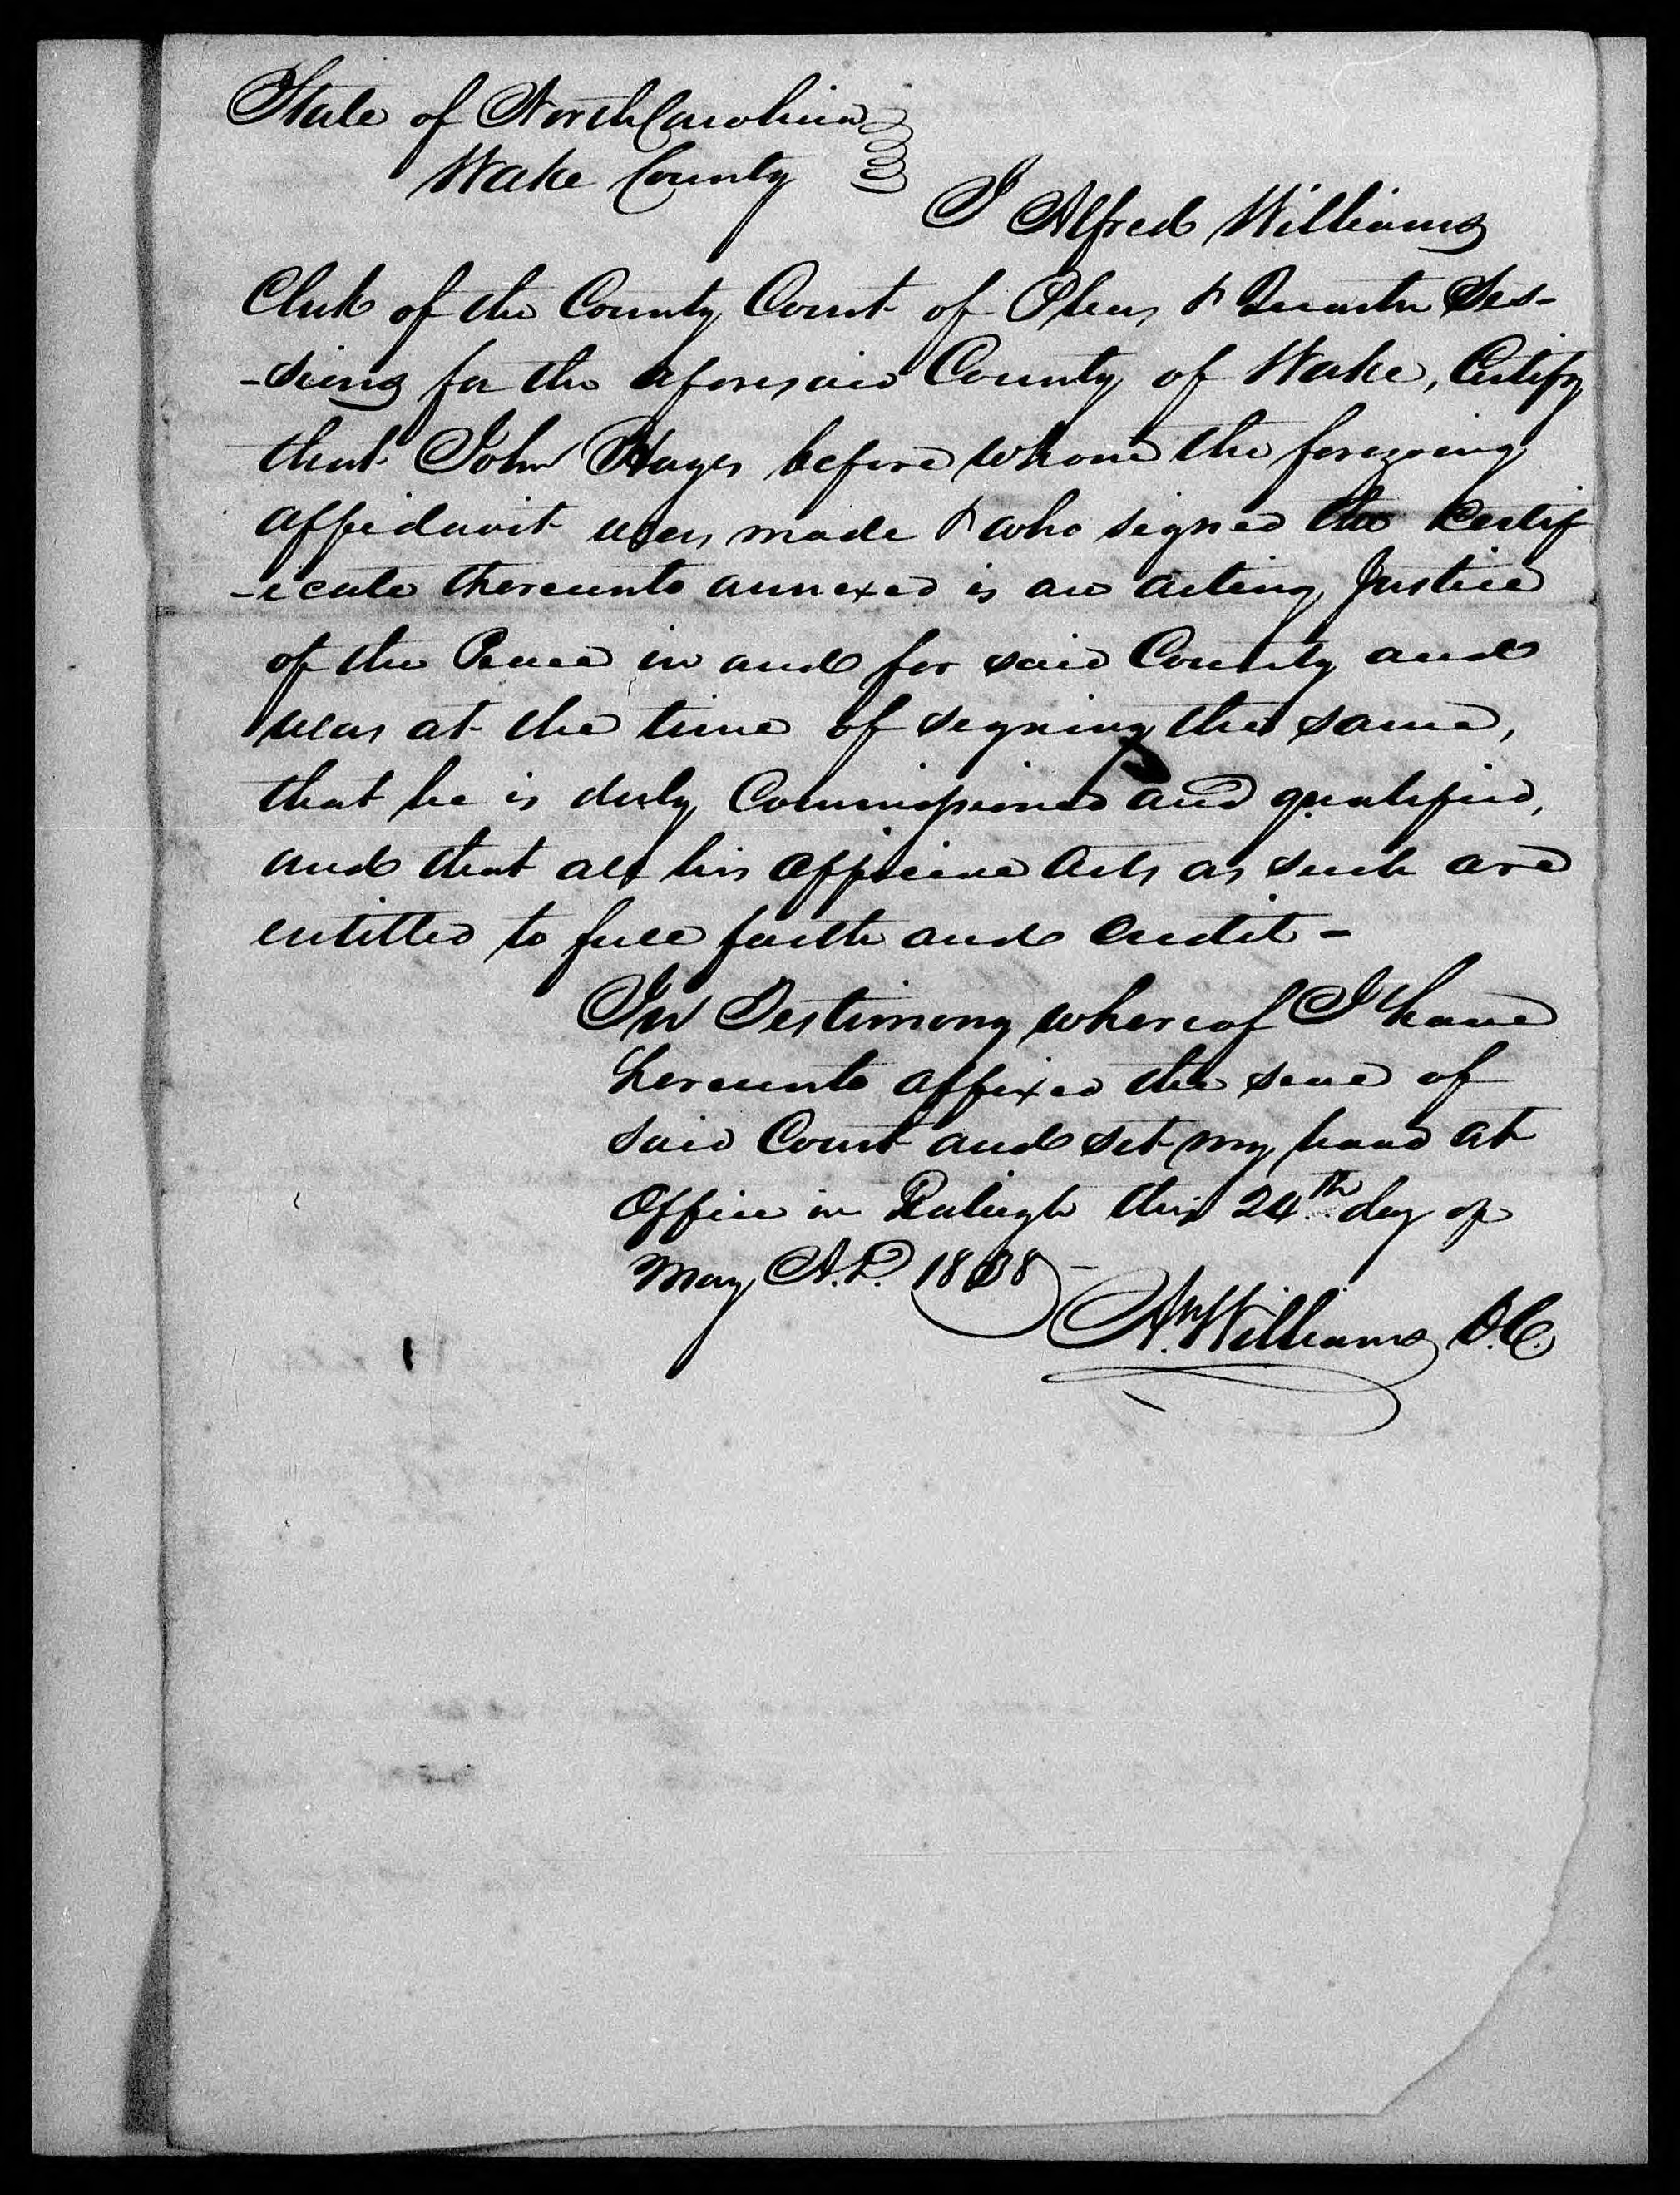 State of North Carolina
Wake County
I Alfred Williams
Clerk of the County Court of Pleas & Quarter Ses-
-sions for the aforesaid County of Wake, Certify
that John Hayes before whom the foregoing
affidavit was made & who signed the Certif
-icate thereunto annexed is an acting Justice
of the Peace in and for said County and
was at the time of signing the same,
that he is duly Commissioned and qualified,
and that all his official acts as such are
entitled to full faith and credit -
In Testimony whereof I have
hereunto affixed the seal of
said Court and set my hand at
Office in Raleigh this 24th day of
May A.D. 1838 -
A. Williams